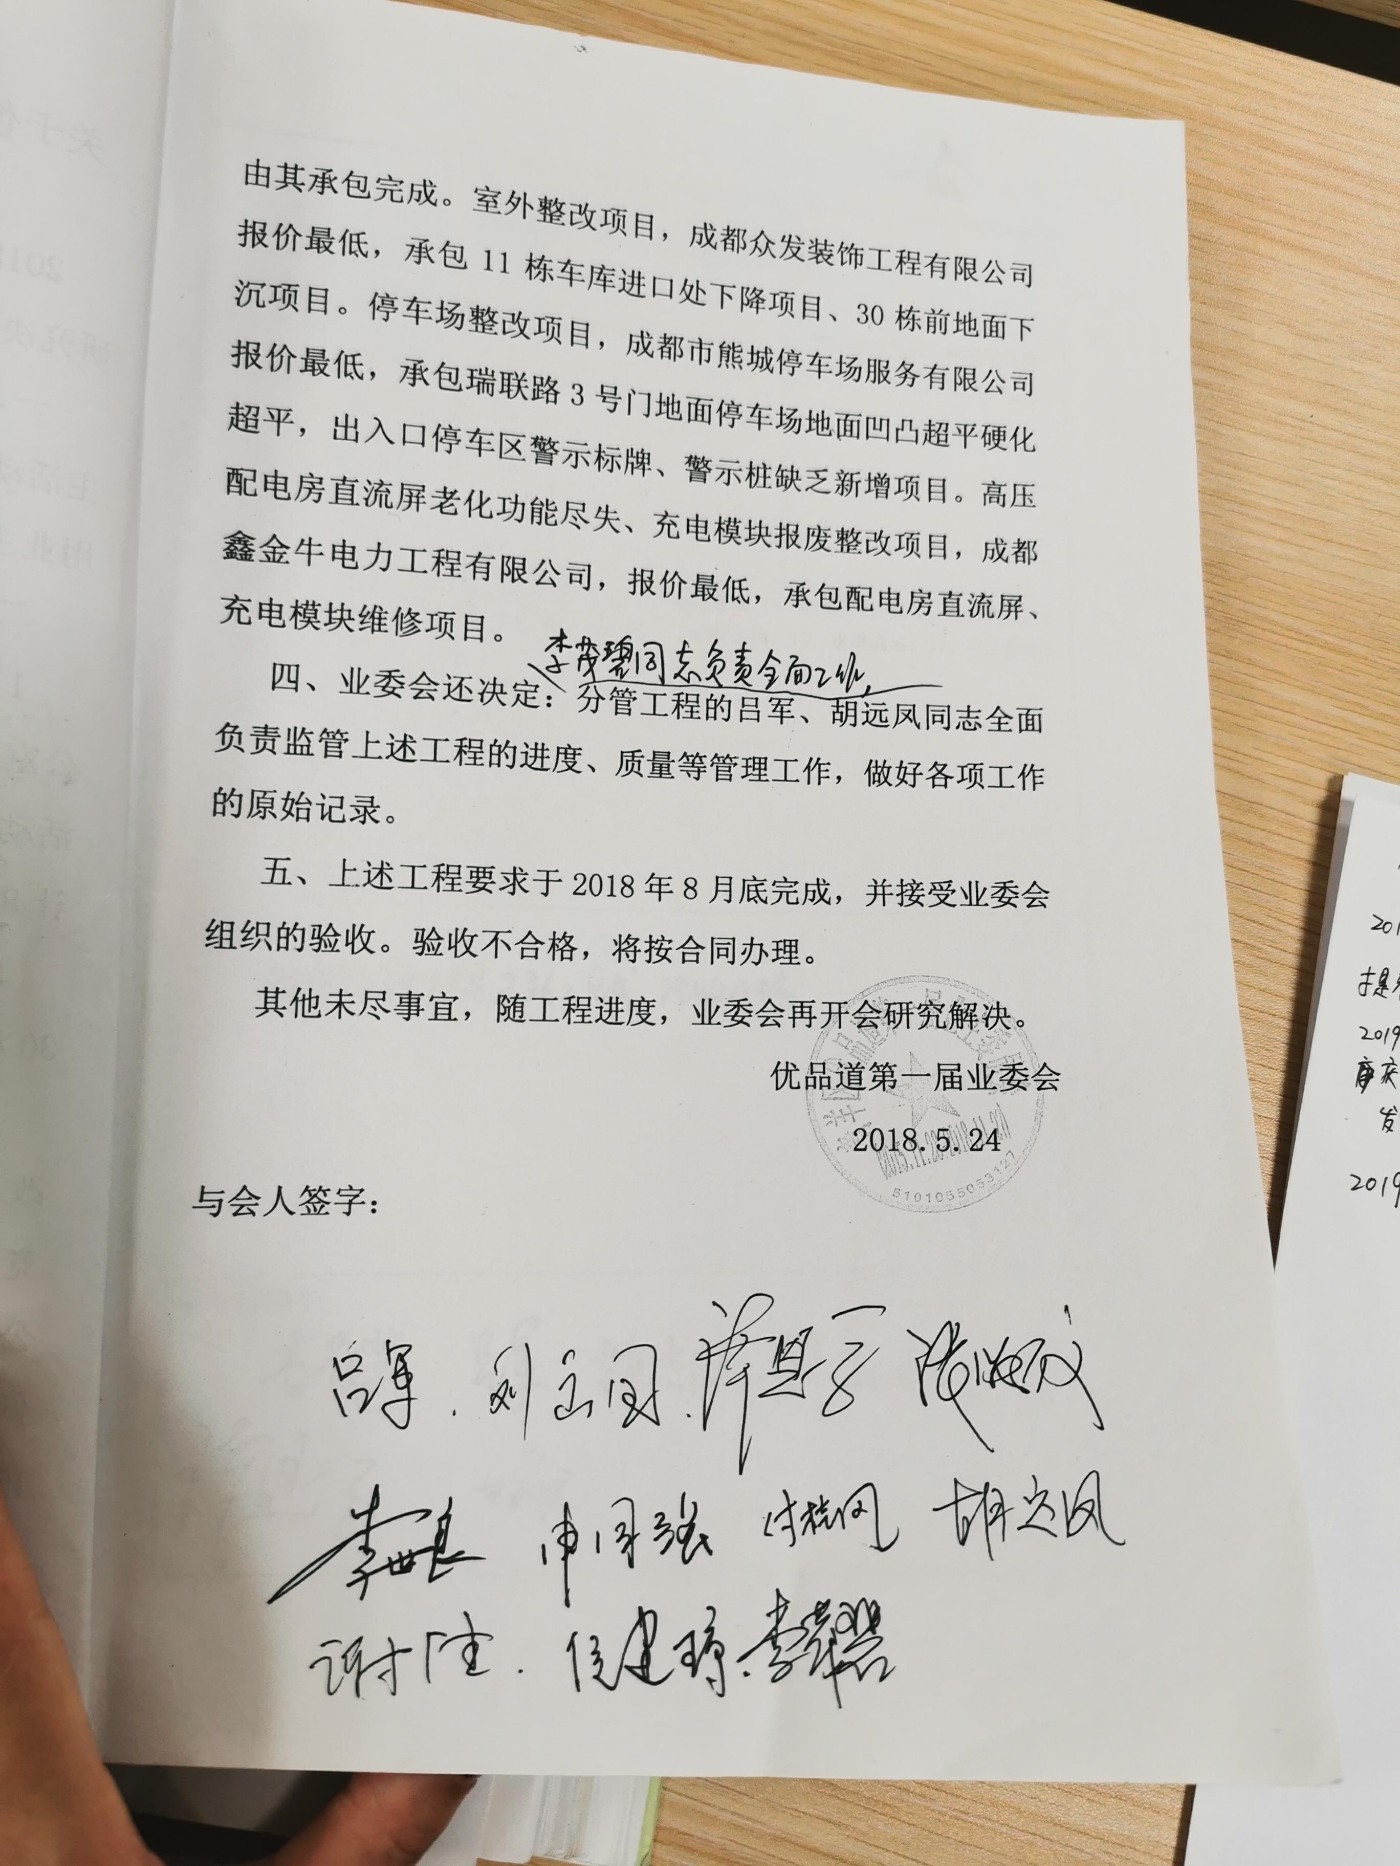 由其承包完成。室外整改项目，成都众发装饰工程有限公司
报价最低，承包 11 栋车库进口处下降项目、30 栋前地面下
沉项目。停车场整改项目，成都市熊城停车场服务有限公司
报价最低，承包瑞联路 3 号门地面停车场地面凹凸超平硬化
超平，出入口停车区警示标牌、警示桩缺乏新增项目。高压
配电房直流屏老化功能尽失、充电模块报废整改项目，成都
鑫金牛电力工程有限公司，报价最低，承包配电房直流屏、
充电模块维修项目。
李茂碧同志负责全面工作，
四、业委会还决定：分管工程的吕军、胡远凤同志全面
负责监管上述工程的进度、质量等管理工作，做好各项工作
的原始记录。
五、上述工程要求于 2018 年 8 月底完成，并接受业委会
组织的验收。验收不合格，将按合同办理。
其他未尽事宜，随工程进度，业委会再开会研究解决。
优品道第一届业委会
2018.5.24
5101055053127
与会人签字：
吕军
李世良 申国强 胡远凤
侯建琼 李茂碧
2019
2019